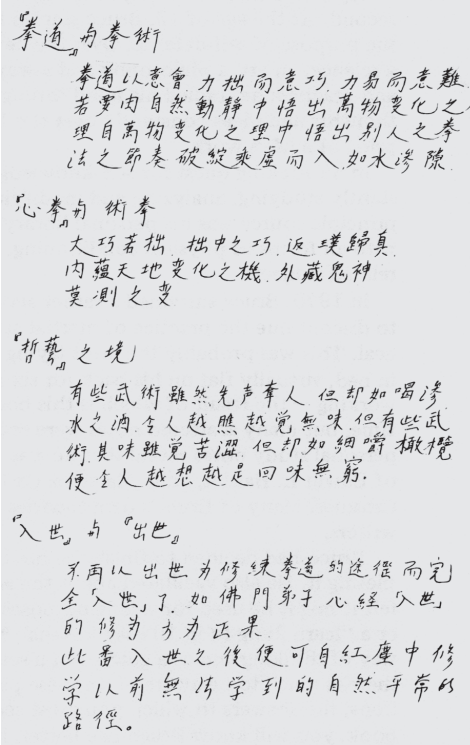 『拳道』与拳術
拳道以意會.力拙而意巧.力易而意難.
若要肉自然動靜中悟出萬物变化之
理自萬物变化之理中悟出别人之拳
法之節奏破綻乘虛而入.如水滲隙.
『心拳』与術拳
大巧若拙.拙中之巧.返璞歸真.
内蘊天地变化之機.外藏鬼神
莫測之变.
『哲藝』之境
有些武術雖然先声奪人.但却如喝滲
水之酒.令人越瞧越觉無味.但有些武
術.其味雖觉苦澀.但却如細嚼橄欖
便令人越想越是回味無窮.
『入世』与『出世』
不再以出世为修練拳道的途徑而完
全「入世」了.如佛門弟子心経「入世」
的修为方为正果
此番入世之後便可自紅塵中修
学以前無法学到的自然平常的
路徑。